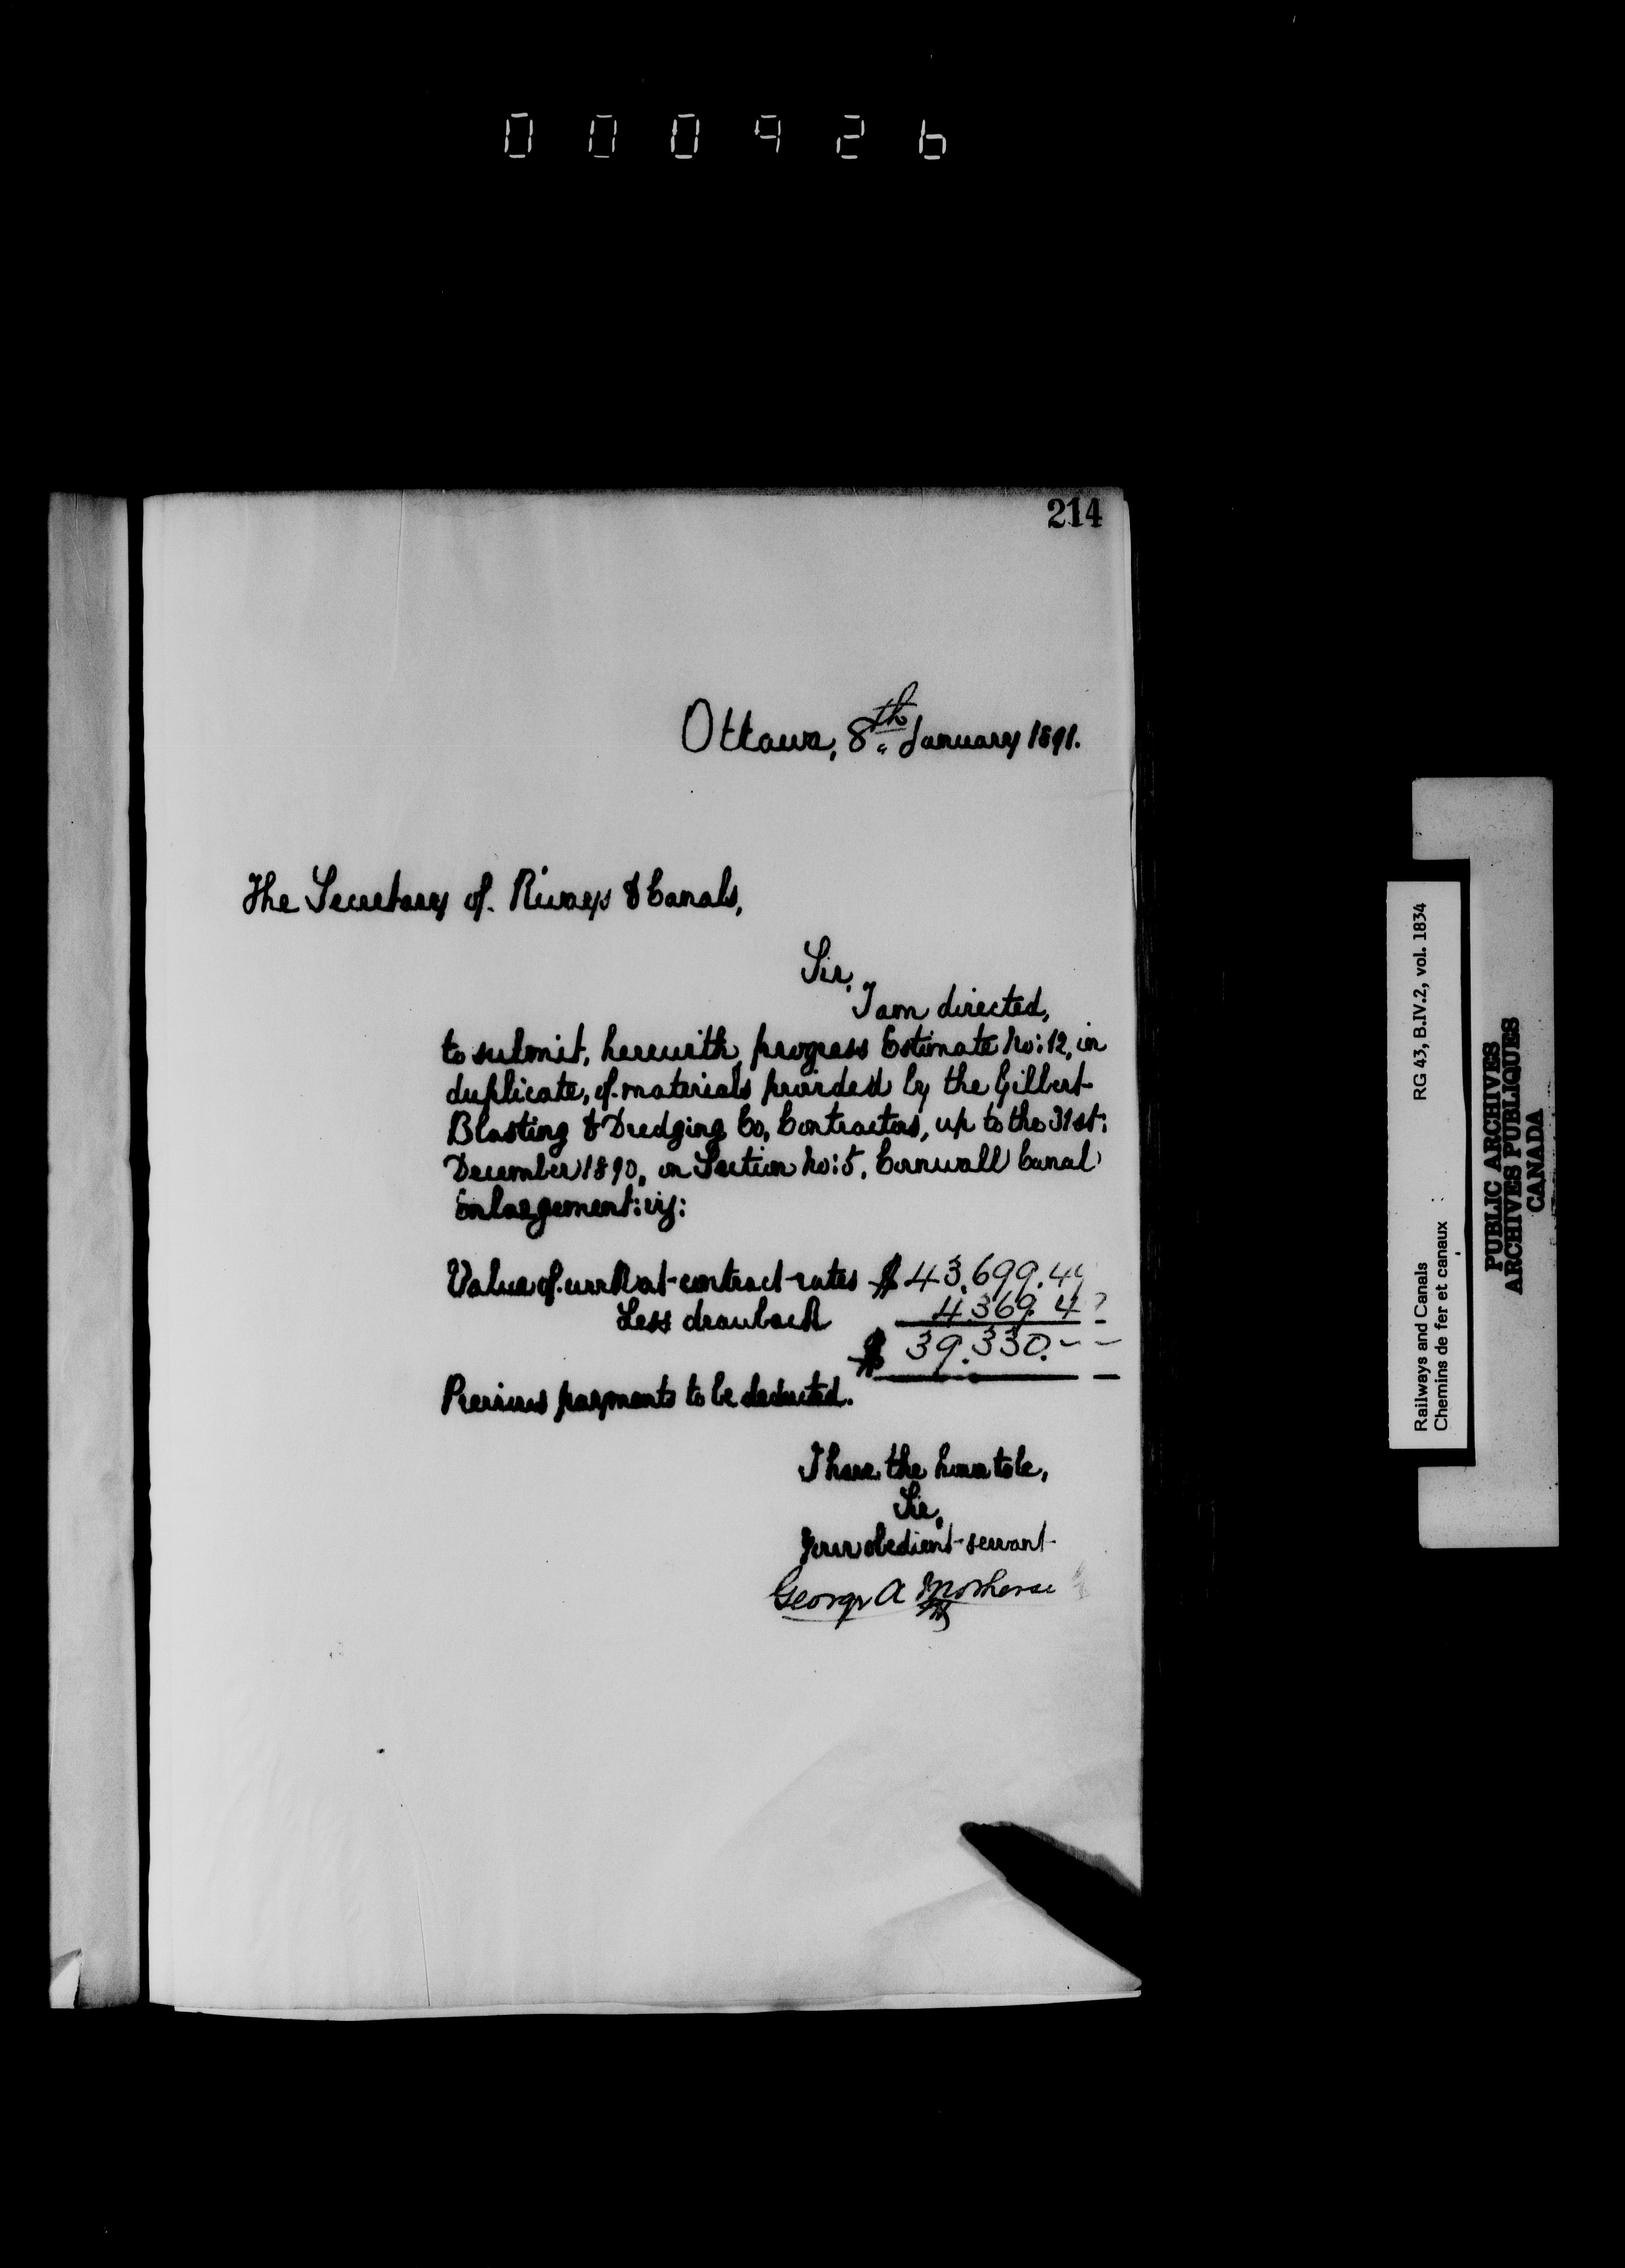 000926
214
Ottawa, 8th January 1891.
The Secretary of Rlways & Canals,
Sir,
I am directed,
to submit, herewith, progress Estimate No: 12, in
duplicate, of materials provided by the Gilbert
Blasting & Dredging Co, Contractors, up to the 31st:
December 1890, on Section No: 5, Cornwall Canal
Enlargement: viz:
Value of work at contract rates $ 43.699.4
Less drawback 4.369.4
$ 39.330.--
Previous payments to be deducted.
I have the honor to be,
Sir,
Your obedient servant
George A
Railways and Canals RG 43, B.IV.2, vol. 1834
Chemins de fer et canaux
PUBLIC ARCHIVES
ARCHIVES PUBLIQUES
CANADA